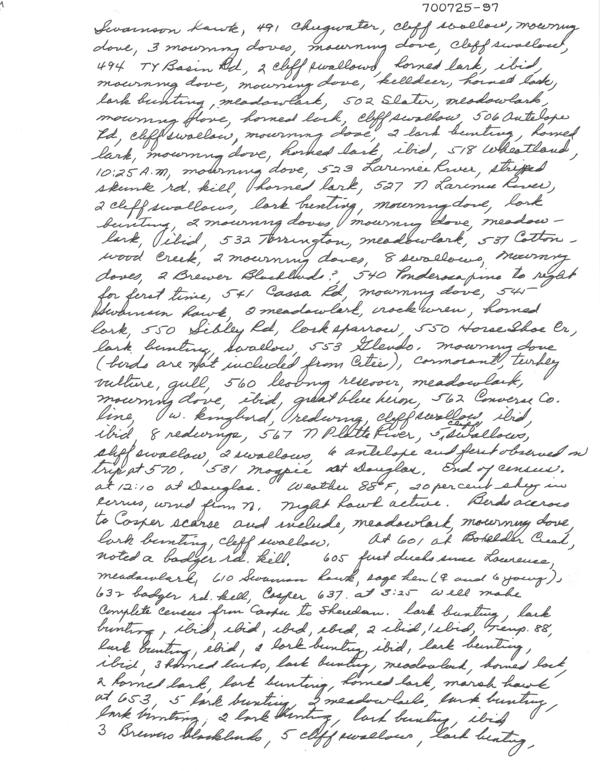 700725-97
Swainson hawk, 491 Chugwater, cliff swallow, mourning
dove, 3 mourning doves, mourning dove, cliff swallow,
494 TY Basin Rd, 2 cliff swallows, horned lark, ibid,
mourning dove, mourning dove, killdeer, horned lark,
lark bunting, meadowlark, 502 Slater, meadowlark,
mourning dove, horned lark, cliff swallow, 506 Antelope
Rd, cliff swallow, mourning dove, 2 lark bunting, horned
lark, mourning dove, horned lark, ibid, 518 Wheatland,
10:25 A.M, mourning dove, 523 Laramie River, striped
skunk rd. kill, horned lark, 527 N Laramie River,
2 cliff swallows, lark bunting, mourning dove, lark
bunting, 2 mourning doves, mourning dove, meadow-
lark, ibid, 532 Torrington, meadowlark, 537 Cotton-
wood Creek, 2 mourning doves, 8 swallows, mourning
doves, 2 Brewer Blackbirds?, 540 Ponderosa pine to right
for first time, 541 Cassa Rd, mourning dove, 545
Swainson hawk, 2 meadowlark, rock wren, horned
lark, 550 Sibley Rd, lark sparrow, 550 Horse Shoe Cr,
lark bunting, swallow, 553 Glendo. mourning dove
(birds are not included from cities), cormorant, turkey
vulture, gull, 560 leaving resevoir, meadowlark,
mourning dove, ibid, great blue heron, 562 Converse Co.
line, w. kingbird, redwing, cliff swallow, ibid,
ibid, 8 redwings, 567 N Platte River, 5 cliff swallows,
cliff swallow, 2 swallows, 6 antelope and first observed on
trip at 570. 581 magpie at Douglas. End of census.
at 12:10 at Douglas. Weather 88°F, 20 percent sky in
cirrus, wind from N. Night hawk active. Birds across
to Casper scarse and include, meadowlark, mourning dove,
lark bunting, cliff swallow. At 601 at Boxelder Creek,
noted a badger rd. kill. 605 first ducks since Lawrence,
meadowlark, 610 Swainson hawk, sage hen (♀ and 6 young),
632 badger rd. kill, Casper 637. at 3:25 Will make
Complete census from Casper to Sheridan. lark bunting, lark
bunting, ibid, ibid, ibid, ibid, 2 ibid, ibid, Temp. 88,
lark bunting, ibid, 2 lark bunting, ibid, lark bunting,
ibid, 3 horned larks, lark bunting, meadowlark, horned lark,
2 horned lark, lark bunting, horned lark, marsh hawk
at 653, 5 lark bunting, 2 meadowlarks, lark bunting,
lark bunting, 2 lark bunting, lark bunting, ibid
3 Brewers blackbirds, 5 cliff swallows, lark bunting,